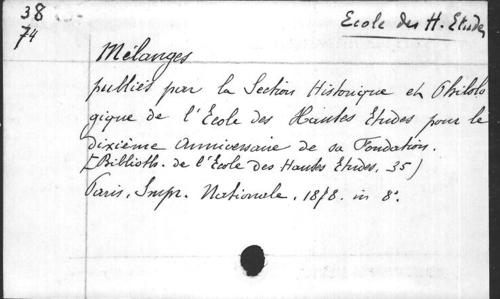 38
74
Ecole des H. Etudes
Mélanges
publiés par la Section Historique et Philolo
gique de l'Ecole des Hautes Etudes pour le
dixième Anniversaire de sa Fondation.
[Biblioth. de l'Ecole des Hautes Etudes, 35)
Paris, Impr. Nationale. 1878. in 8°.